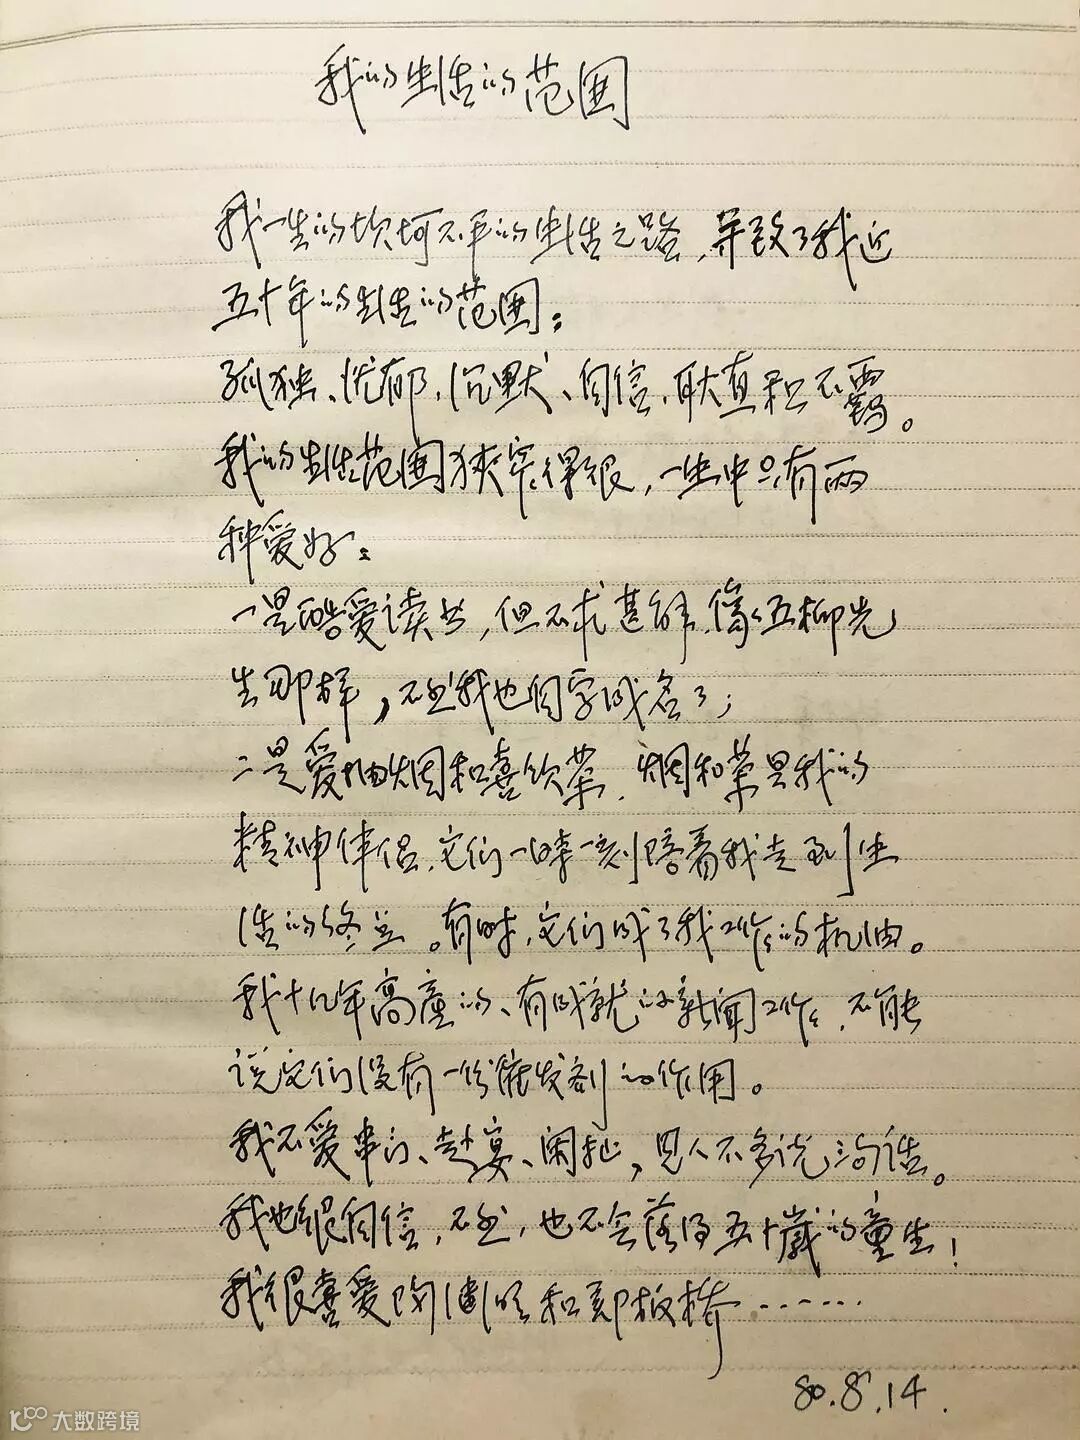 我的生活的范围
我一生的坎坷不平的生活之路,导致了我近
五十年的生活的范围:
孤独、忧郁,沉默、自信,耿直和不羁。
我的生活范围狭窄得很,一生中只有两
种爱好:
一是酷爱读书,但不求甚解,像五柳先
生那样,不然我也自学成名了;
二是爱抽烟和喜饮茶,烟和茶是我的
精神伴侣,它们一时一刻陪着我走到生
活的终点。有时,它们成了我工作的机油。
我十几年高产的、有成就的新闻工作,不能
说它们没有一份催发剂的作用。
我不爱串门、赴宴、闲扯,见人不多说三句话。
我也很自信,不然,也不会落得五十岁的童生!
我很喜爱陶渊明和郑板桥……
80.8.14.
大数跨境